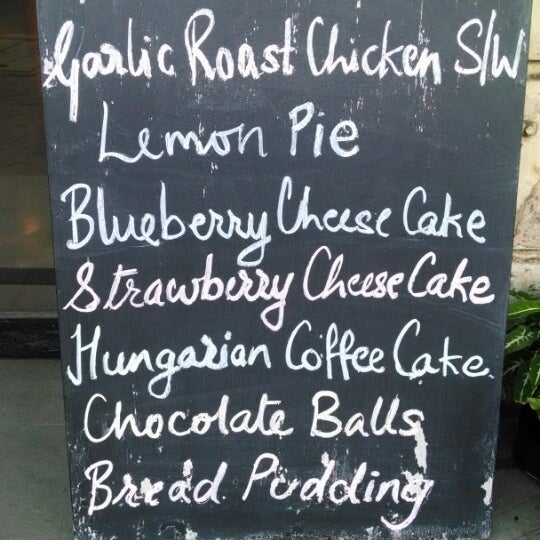 Garlic Roast Chicken S/W
Lemon Pie
Blueberry Cheese Cake
Strawberry Cheese Cake
Hungarian Coffee Cake
Chocolate Balls
Bread Pudding